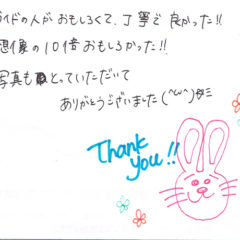 ガイドの人が おもしろくて、丁寧で 良かった!!
想像の10倍 おもしろかった!!
写真も とっていただいて
ありがとうございました(^ω^)
Thank
you!!